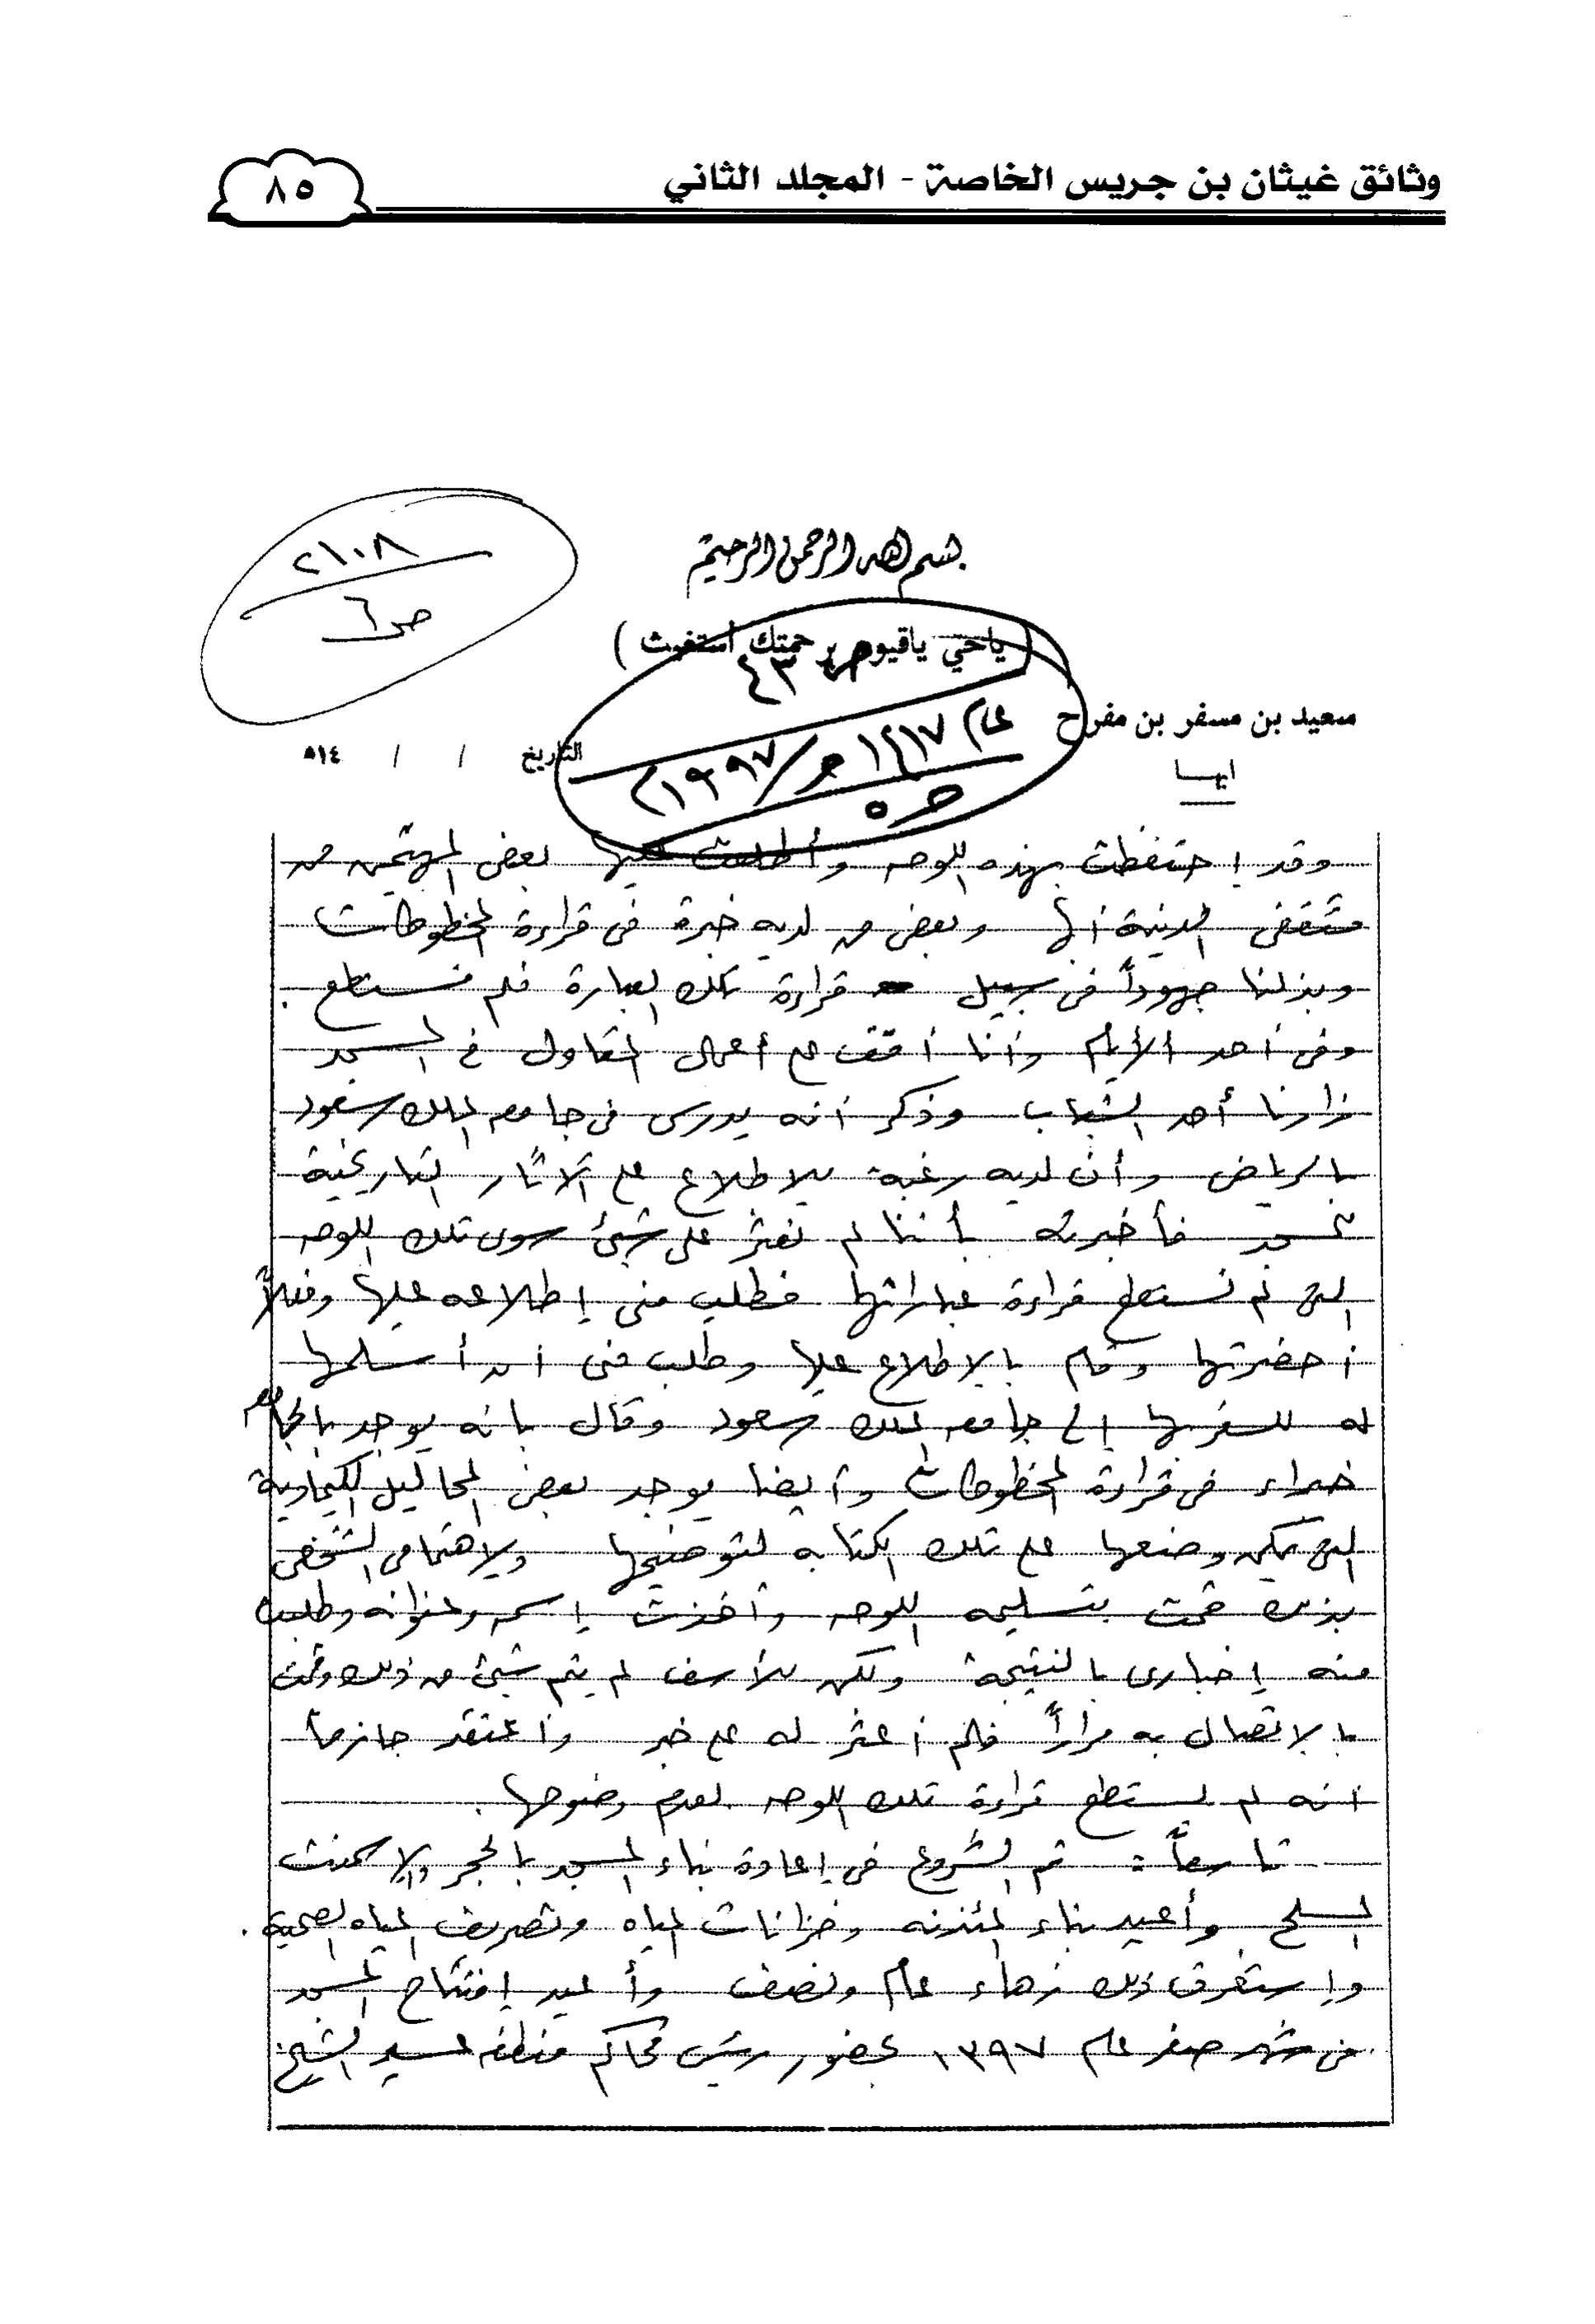 وثائق غيثان بن جريس الخاصة - المجلد الثاني
٨٥
بسم الله الرحمن الرحيم
٢١٠٨
ص٦
( ياحي ياقيوم برحمتك استغيث )
٤٣
عام ١٤١٧هـ/١٩٩٧م
ص٥
سعيد بن مسفر بن مفرح
ابها
التاريخ / / ١٤هـ
وقد إحتفظت بهذه اللوحه وأطلعت عليها بعض المهتمين من
مثقفى المدينة أبها وبعض من لديه خبرة فى قراءة المخطوطات
وبذلنا جهوداً فى سبيل قراءة تلك العبارة فلم نستطع .
وفى أحد الأيام وأنا أقف على أعمال المقاول فى المسجد
زارنا أحد الشباب وذكر أنه يدرس فى جامعه الملك سعود
بالرياض وأن لديه رغبة للاطلاع على الآثار التاريخية
بالمسجد فأخبرته بأننا لم نعثر على شيئ سوى تلك اللوحه
التى لم نستطع قراءة عباراتها فطلب منى إطلاعه عليها وفعلاً
أحضرتها وقام بالاطلاع عليها وطلب منى أن أسلمها
له للسفر بها إلى جامعه الملك سعود وقال بانه يوجد بالجامعه
خبراء فى قراءة المخطوطات وأيضا يوجد بعض المحاليل الكيماوية
التى يمكن وضعها على تلك الكتابه لتوضيحها ولاهتمامى الشخصى
بذلك قمت بتسليمه اللوحه وأخذت إسمه وعنوانه وطلبت
منه إخبارى بالنتيجة ولكن للأسف لم يتم شيئ من ذلك وقمت
بالاتصال به مراراً فلم أعثر له على خبر وأعتقد جازماً
أنه لم يستطع قراءة تلك اللوحه لعدم وضوحها .
تاسعاً : تم الشروع فى إعادة بناء المسجد بالحجر والاسمنت
المسلح وأعيد بناء المئذنه وخزانات المياه وتصريف المياه الصحية .
وإستغرق ذلك زهاء عام ونصف وأعيد إفتتاح المسجد
فى شهر صفر عام ١٣٩٧ بحضور رئيس محاكم منطقه عسير الشيخ